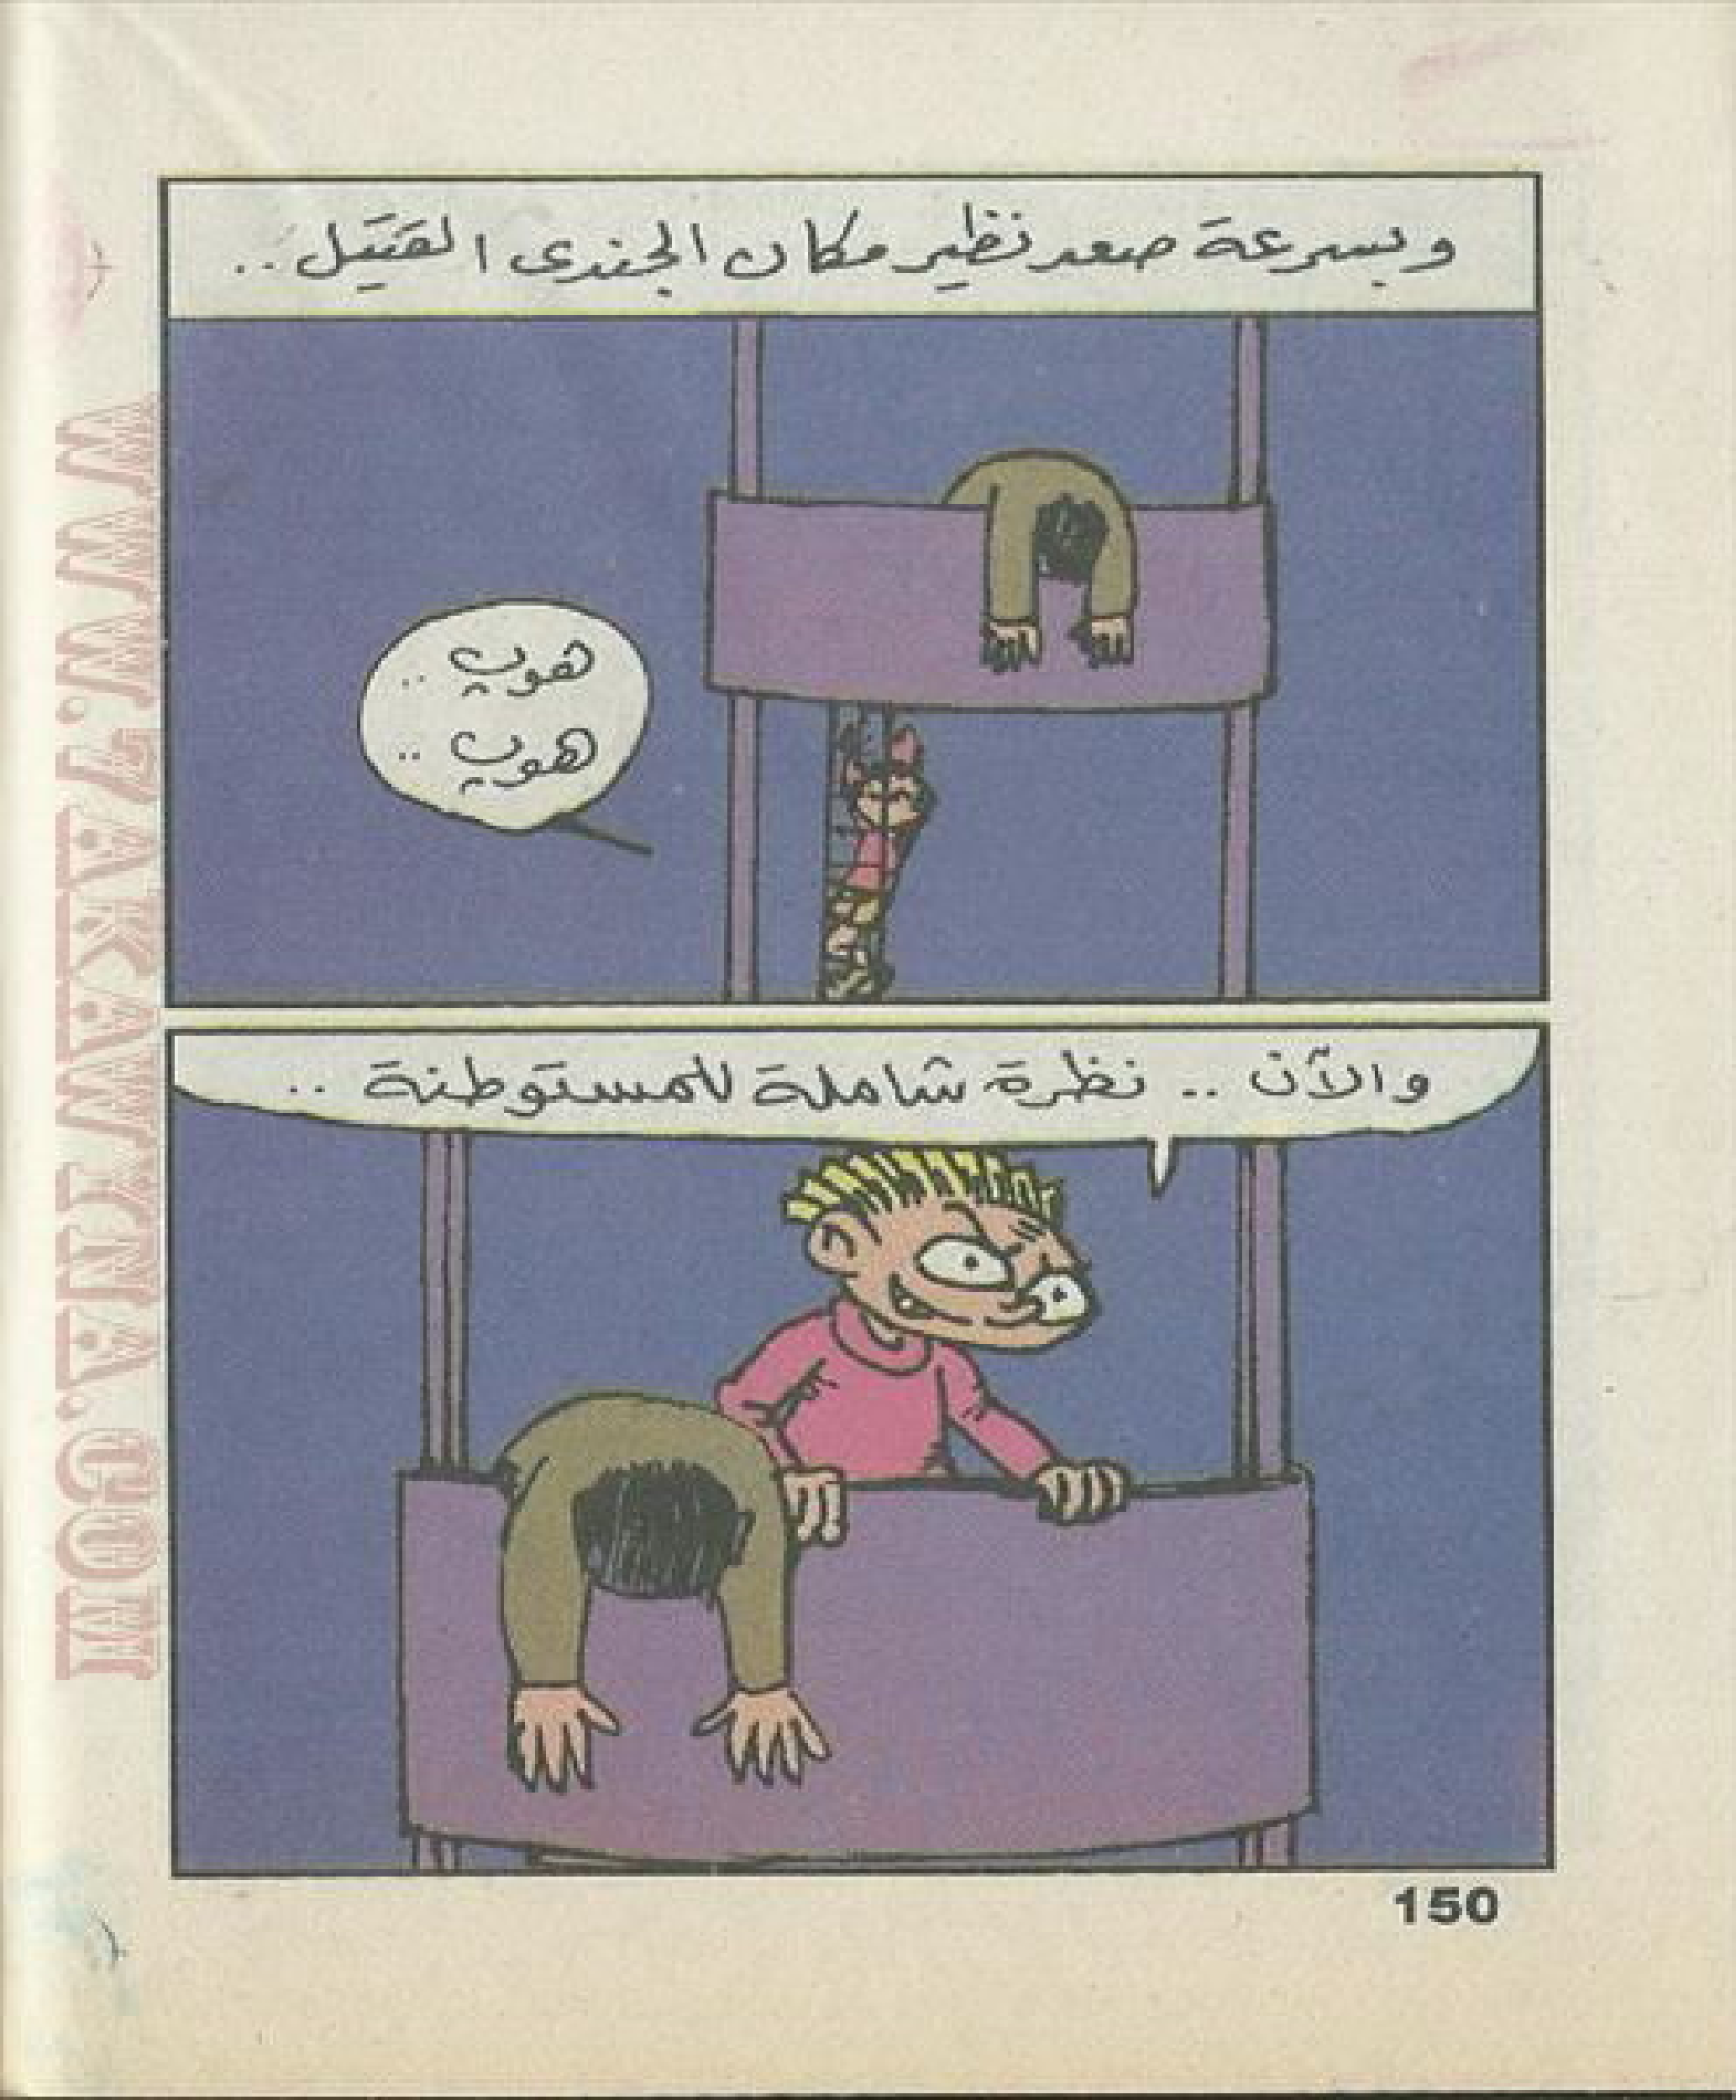 وبسرعة صعد نظير مكان الجندى القتيل ..
هوب ..
هوب ..
والآن .. نظرة شاملة للمستوطنة ..
150
WWW.7AKAWINA.COM